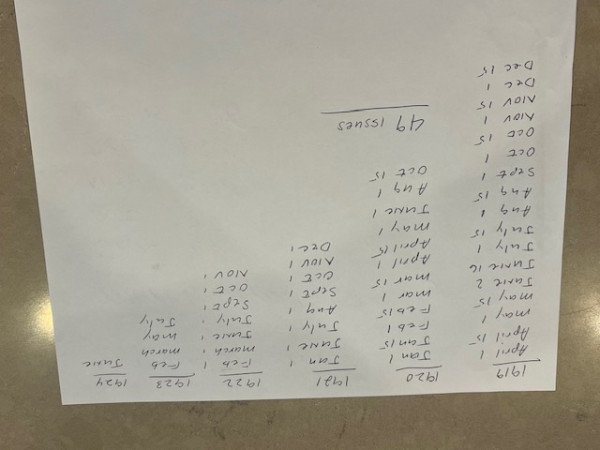 1919
April 1
April 15
may 1
may 15
June 2
June 16
July 1
July 15
Aug 1
Aug 15
Sept 1
Oct 1
Oct 15
Nov 1
Nov 15
Dec 1
Dec 15
1920
Jan 1
Jan 15
Feb 1
Feb 15
mar 1
mar 15
April 1
April 15
may 1
June 1
Aug 1
Oct 15
49 issues
1921
Jan 1
June 1
July 1
Aug 1
Sept 1
Oct 1
Nov 1
Dec 1
1922
Feb 1
march 1
June 1
July 1
Sept 1
Oct 1
Nov 1
1923
Feb
march
may
July
1924
June